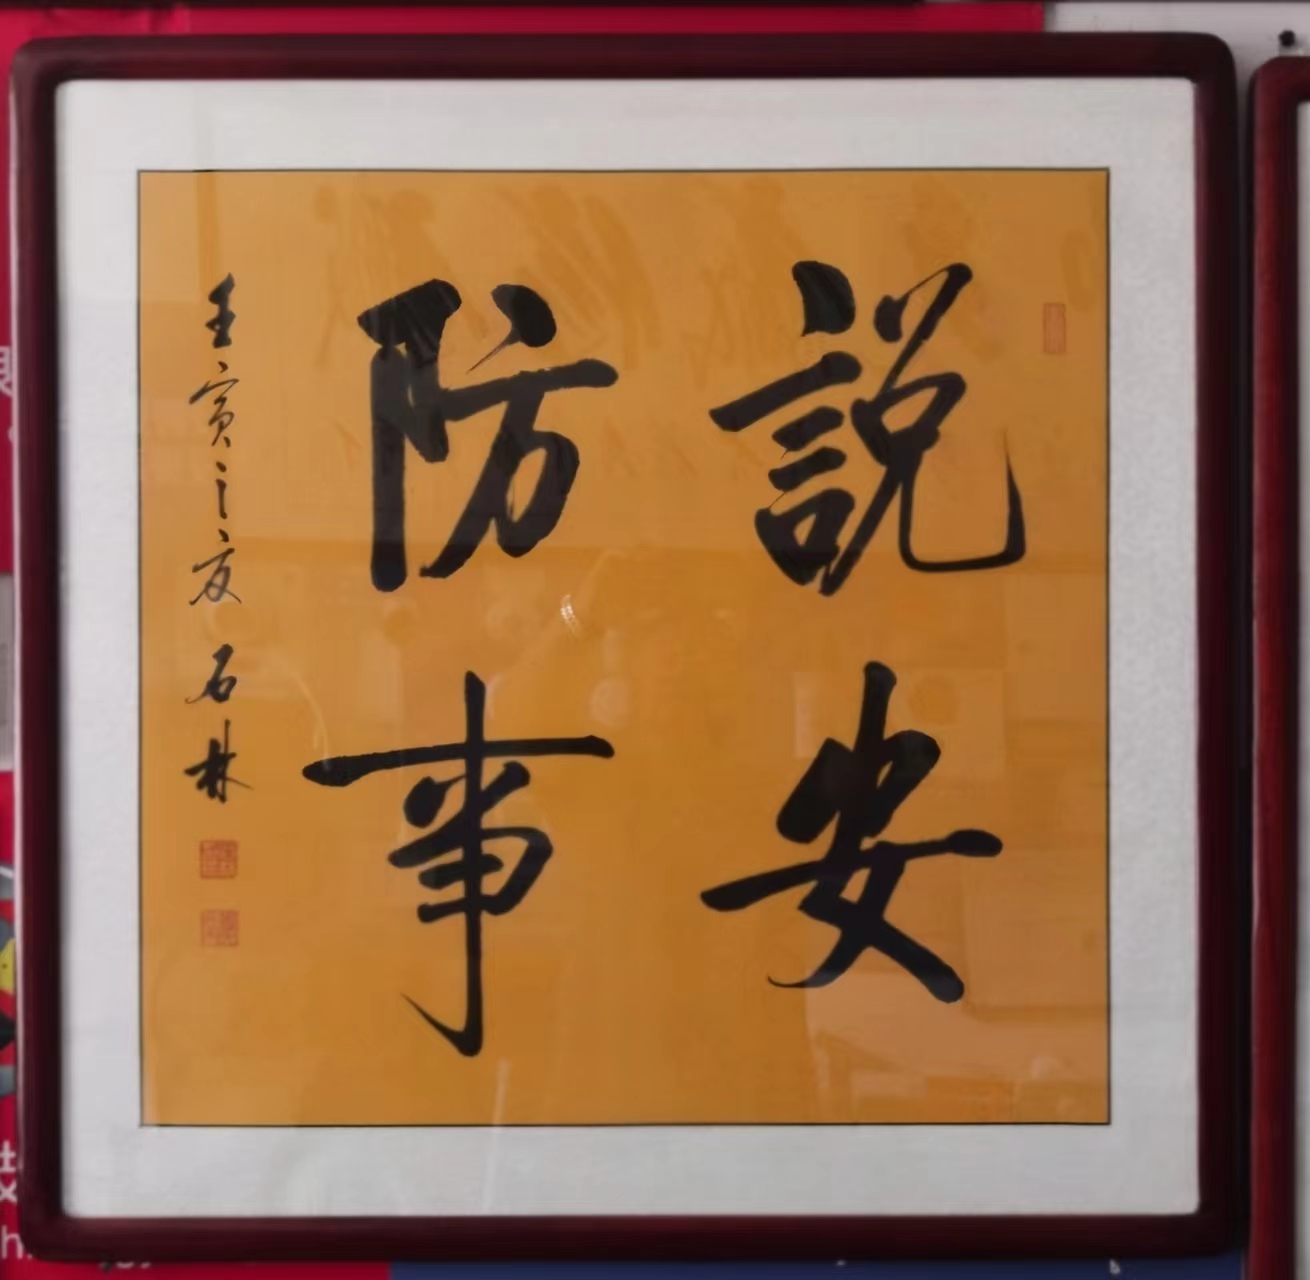 説安
防事
壬寅之夏 石林